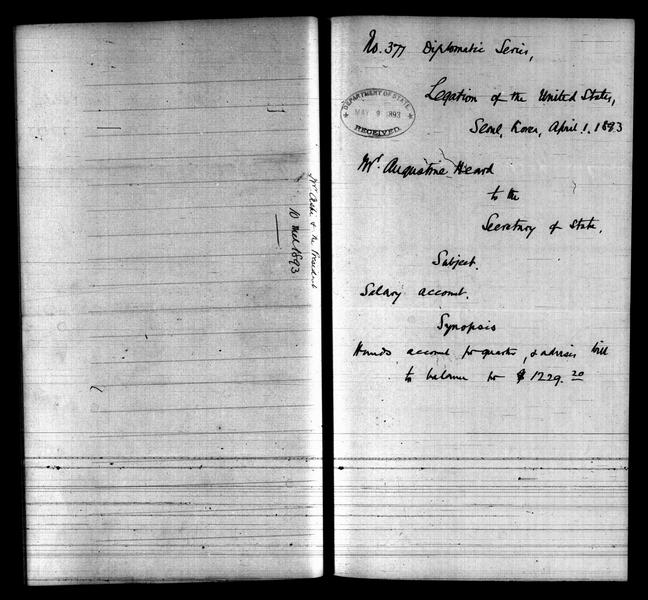 No. 377 Diplomatic Series,
Legation of the United States,
DEPARTMENT OF STATE
MAY 9 1893
RECEIVED
Seoul, Korea, April 1. 1893
Mr. Augustine Heard
to the
Secretary of State,
Subject.
Salary account.
Synopsis
Hands account for quarter, & advises bill
to balance for $1229.20
10 1893